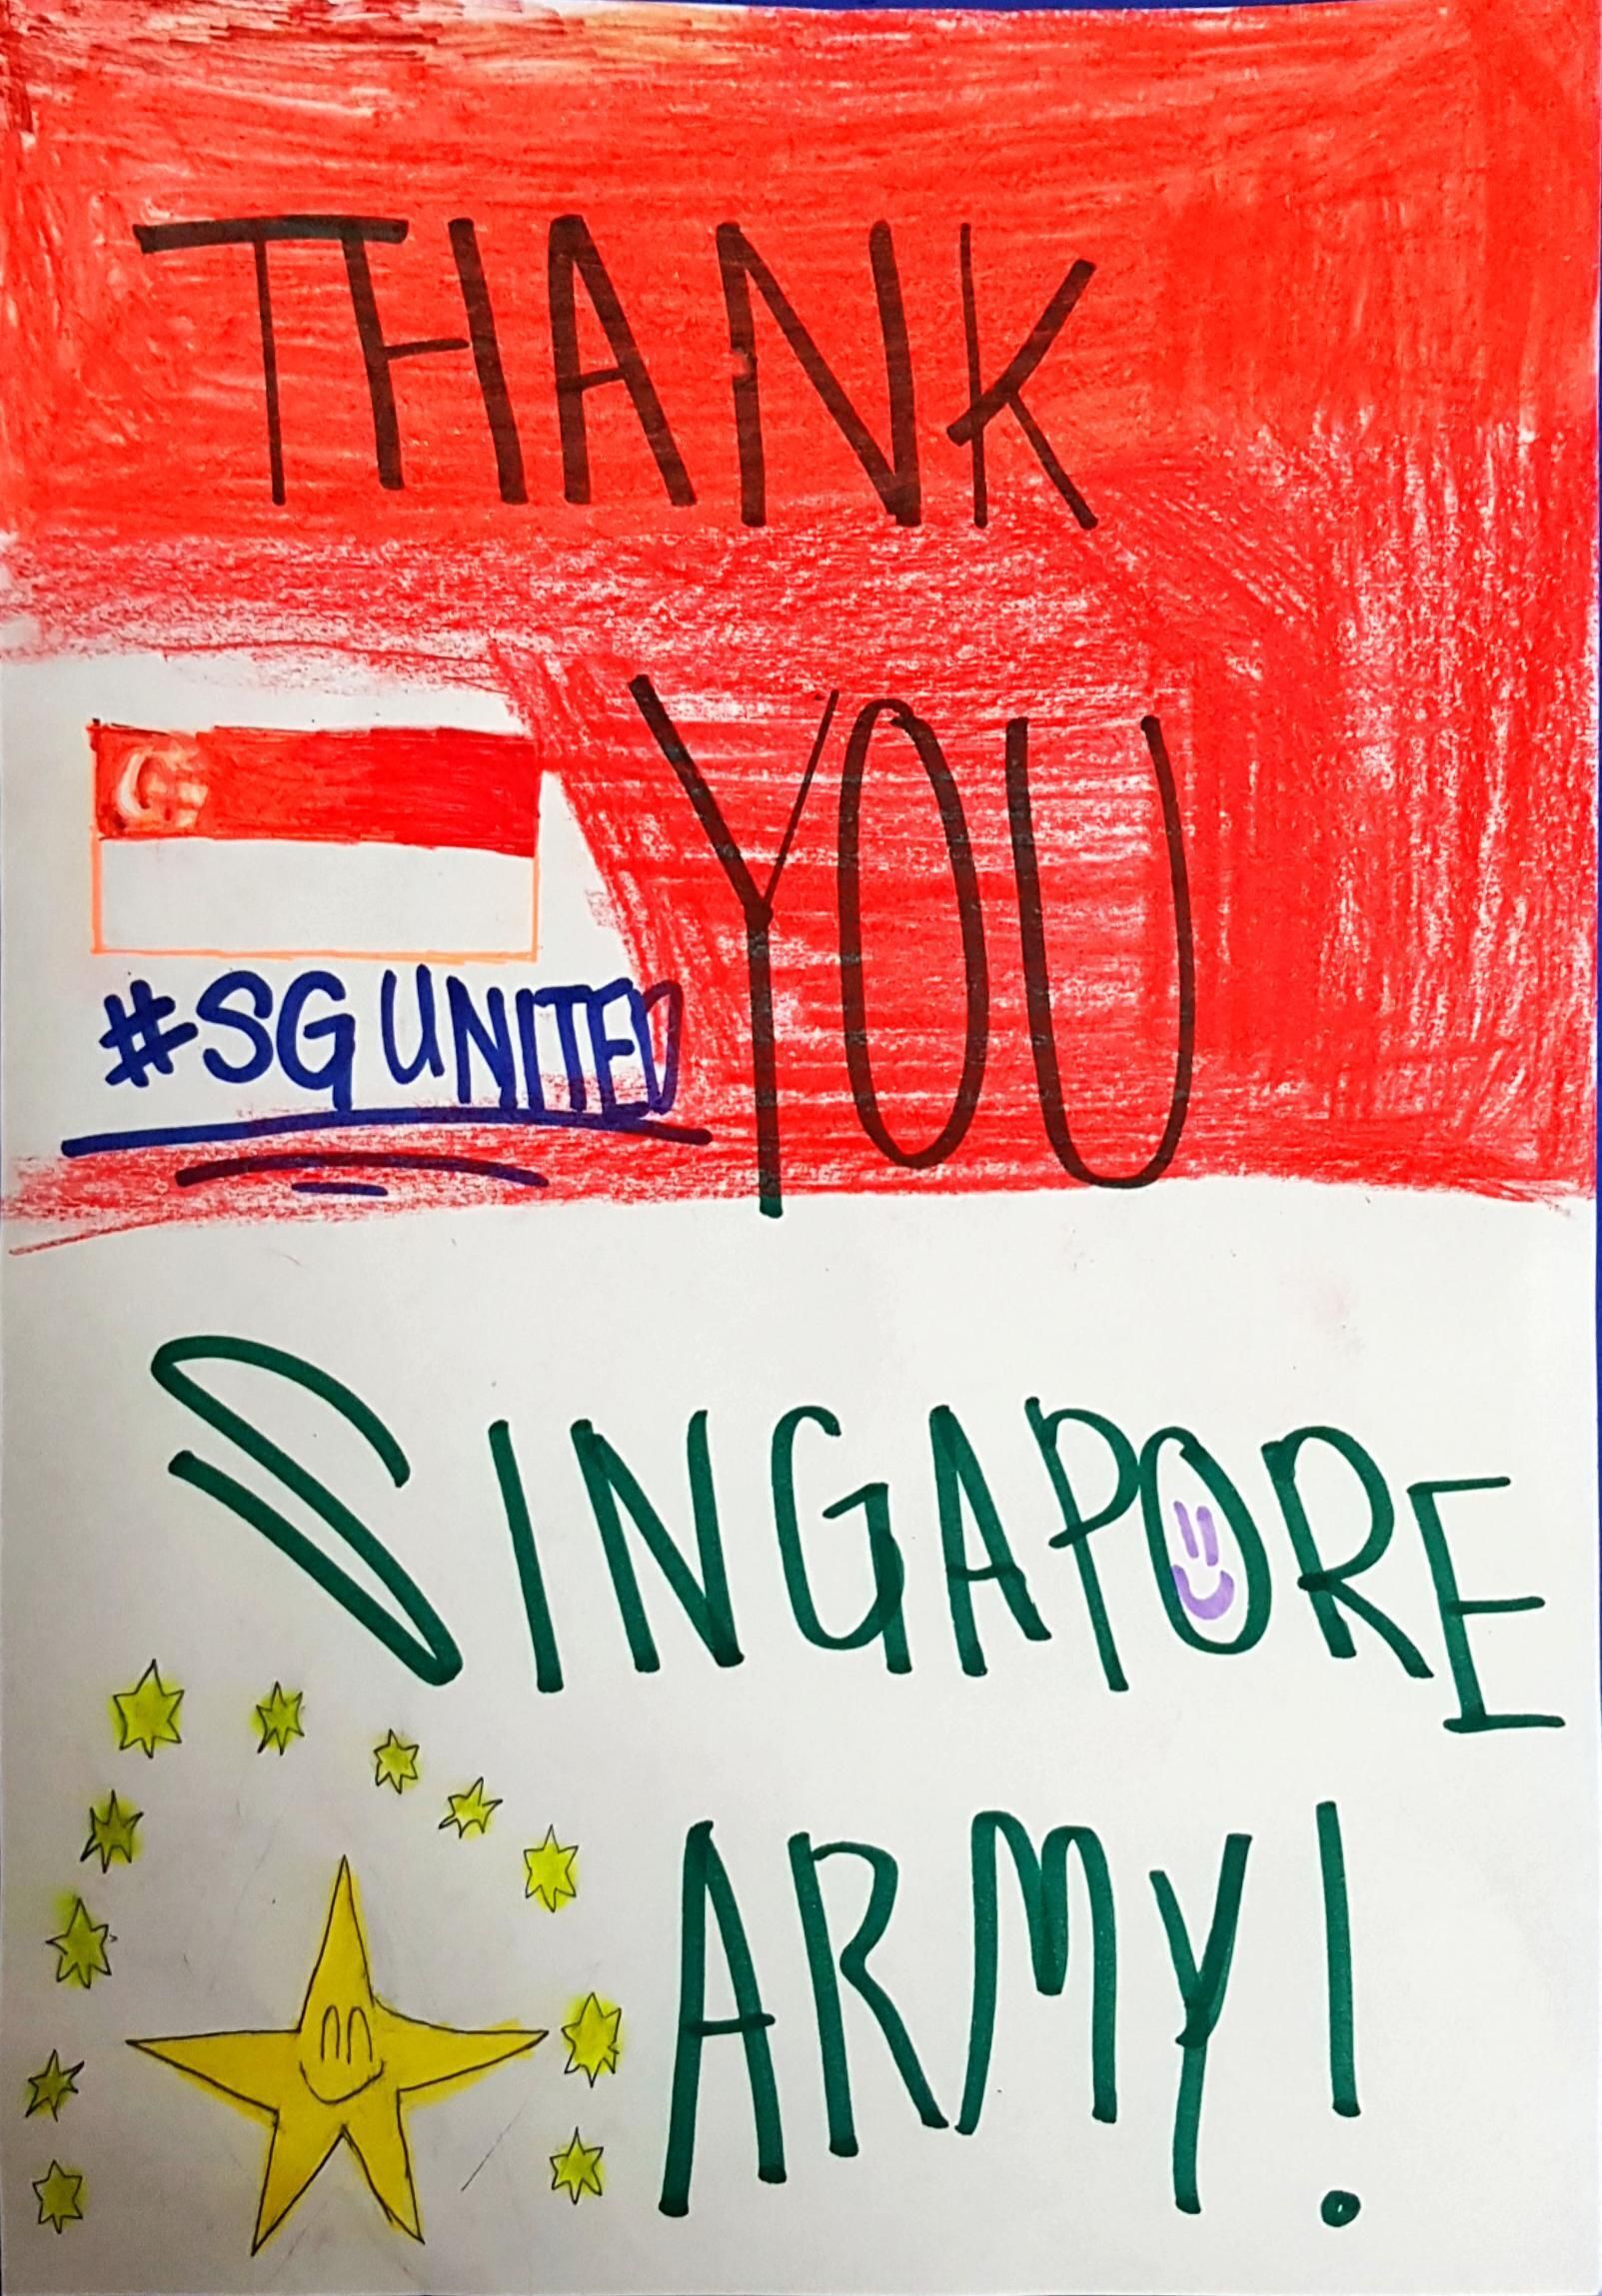 THANK
YOU
#SGUNITED
SINGAPORE
ARMY!